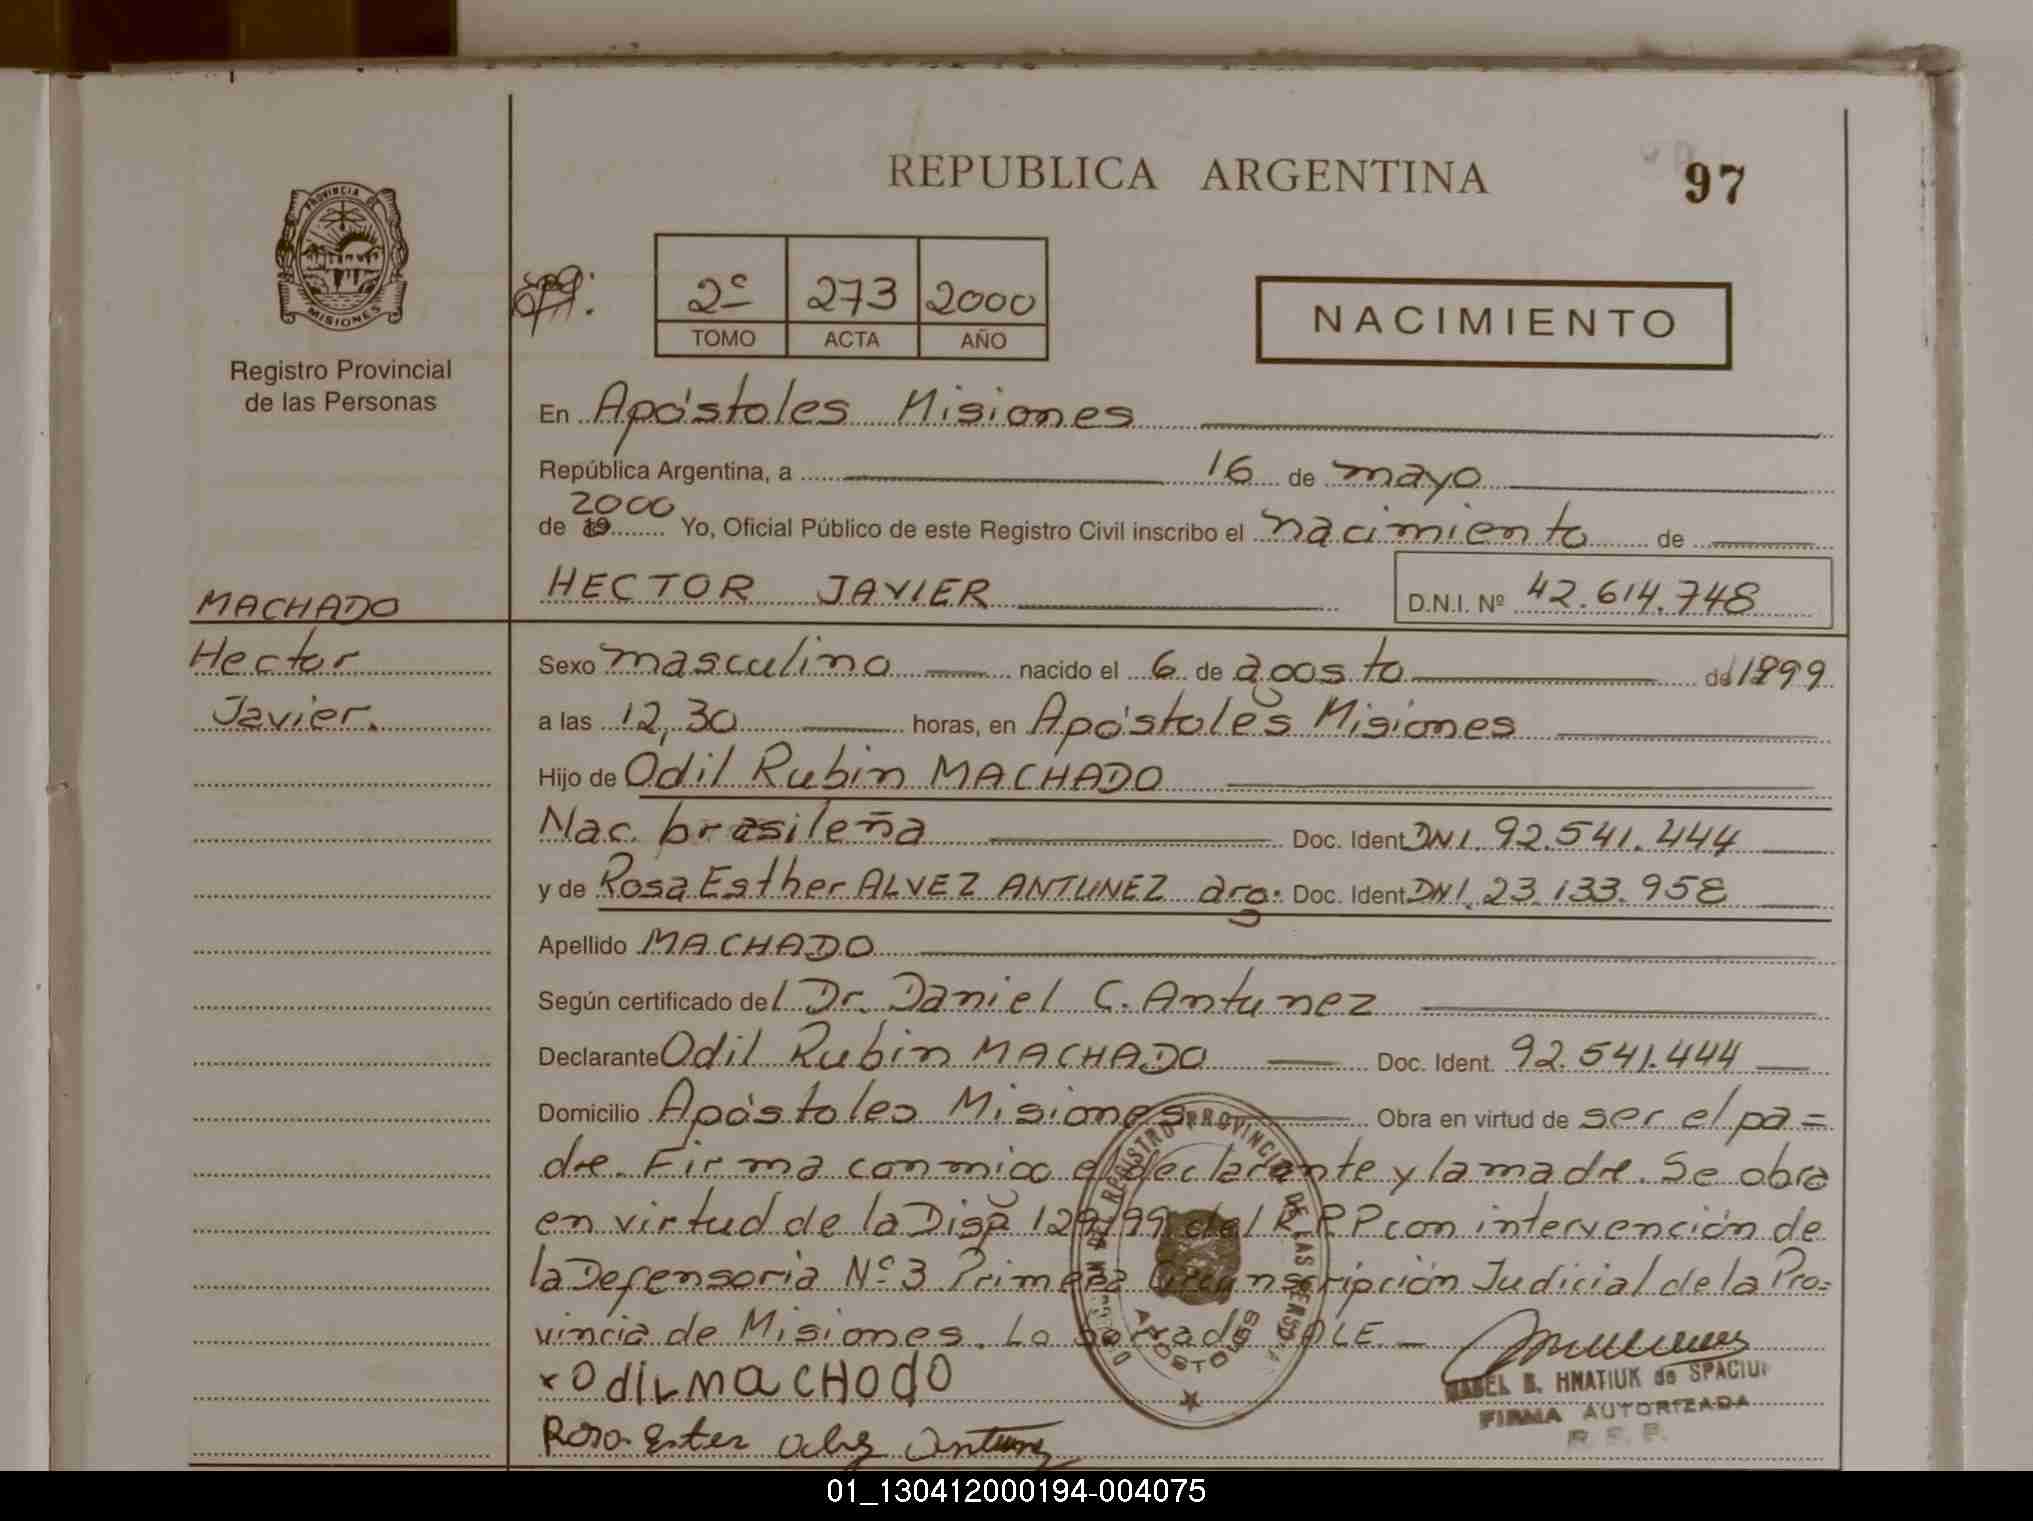 REPUBLICA ARGENTINA
97
PROVINCIA DE
MISIONES
Registro Provincial
de las Personas
2º 273 2000
TOMO ACTA AÑO
NACIMIENTO
En Apóstoles Misiones
República Argentina, a 16 de mayo
de 19 2000 Yo, Oficial Público de este Registro Civil inscribo el nacimiento de
HECTOR JAVIER D.N.I. Nº 42.614.748
MACHADO
Hector
Javier.
Sexo masculino nacido el 6 de agosto de 1999
a las 12,30 horas, en Apóstoles Misiones
Hijo de Odil Rubin MACHADO
Nac. brasileña Doc. Ident. DNI. 92.541.444
y de Rosa Esther ALVEZ ANTUNEZ arg. Doc. Ident. DNI. 23.133.958
Apellido MACHADO
Según certificado del Dr. Daniel C. Antunez
Declarante Odil Rubin MACHADO Doc. Ident. 92.541.444
Domicilio Apóstoles Misiones Obra en virtud de ser el pa=
dre. Firma conmigo el declarante y la madre. Se obra
en virtud de la Disp. 129/99 del R.P.P con intervención de
la Defensoria Nº 3 Primera Circunscripción Judicial de la Pro=
vincia de Misiones. Lo borrado VALE.—
x OdiL MACHODO
Rosa Ester Antunez
REGISTRO PROVINCIAL DE LAS PERSONAS
APOSTOLES
MABEL B. HNATIUK de SPACIUK
FIRMA AUTORIZADA
R. P. P.
01_130412000194-004075